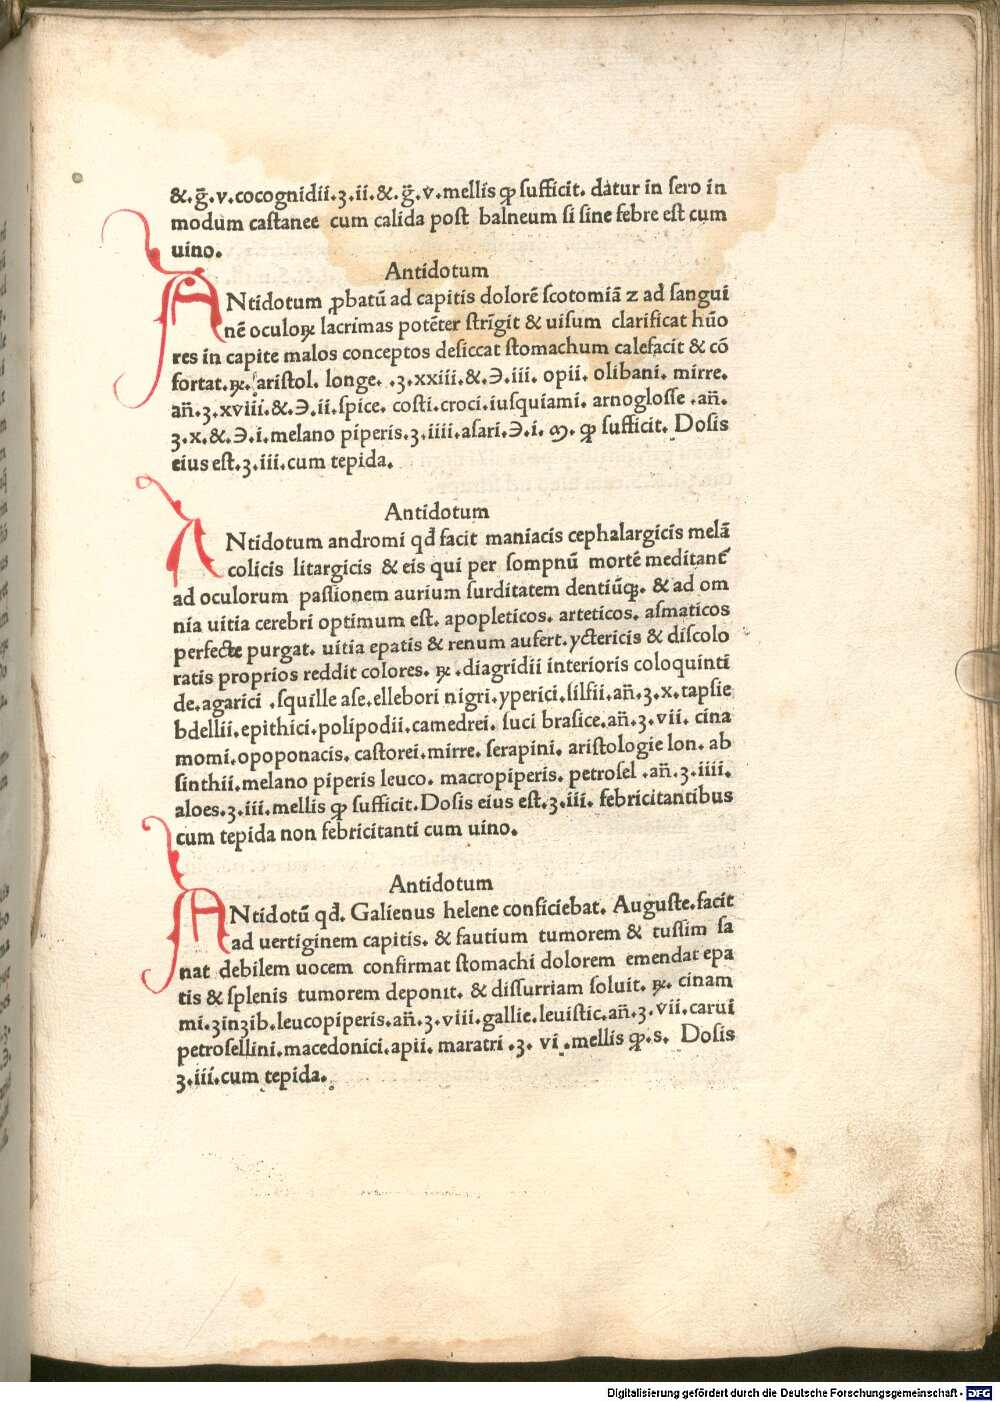 &.g̃.v.cocognidii.ʒ.ii.&.g̃.v.mellis ꝙ ſufficit. datur in ſero in
modum caſtanee cum calida poſt balneum ſi ſine febre eſt cum
uino.
Antidotum
ANtidotum ꝓbatū ad capitis dolorē ſcotomiā z ad ſangui
nē oculoꝝ lacrimas potēter ſtrīgit & uiſum clarificat hūo
res in capite malos conceptos deſiccat ſtomachum calefacit & cō
fortat.℞. ariſtol. longe. .ʒ.xxiii.&.℈.iii. opii. olibani. mirre.
añ.ʒ.xviii.&.℈.ii.ſpice. coſti.croci.iuſquiami. arnogloſſe .añ.
ʒ.x.&.℈.i.melano piperis.ʒ.iiii.aſari.℈.i. ꝳ. ꝙ ſufficit. Doſis
eius eſt.ʒ.iii.cum tepida.
Antidotum
ANtidotum andromi qđ facit maniacis cephalargicis melā
colicis litargicis & eis qui per ſompnū mortē meditant̄
ad oculorum paſſionem aurium ſurditatem dentiūqꝫ. & ad om
nia uitia cerebri optimum eſt. apopleticos. arteticos. aſmaticos
perfecte purgat. uitia epatis & renum aufert.yctericis & diſcolo
ratis proprios reddit colores. ℞ .diagridii interioris coloquinti
de.agarici .ſquille aſe.ellebori nigri.yperici.ſilfii.añ.ʒ.x.tapſie
bdellii.epithici.polipodii.camedrei. ſuci braſice.añ.ʒ.vii. cina
momi.opoponacis. caſtorei.mirre. ſerapini. ariſtologie lon. ab
ſinthii.melano piperis leuco. macropiperis. petroſel .añ.ʒ.iiii.
aloes.ʒ.iii.mellis ꝙ ſufficit.Doſis eius eſt.ʒ.iii. febricitantibus
cum tepida non febricitanti cum uino.
Antidotum
ANtidotū qđ. Galienus helene conficiebat. Auguſte.facit
ad uertiginem capitis. & fautium tumorem & tuſſim ſa
nat debilem uocem confirmat ſtomachi dolorem emendat epa
tis & ſplenis tumorem deponit. & diſſurriam ſoluit. ℞. cinam
mi.ʒinʒib.leucopiperis.añ.ʒ.viii.gallie.leuiſtic.añ.ʒ.vii.carui
petroſellini.macedonici.apii. maratri .ʒ. vi .mellis ꝙ.s. Doſis
ʒ.iii.cum tepida.
Digitalisierung gefördert durch die Deutsche Forschungsgemeinschaft - DFG